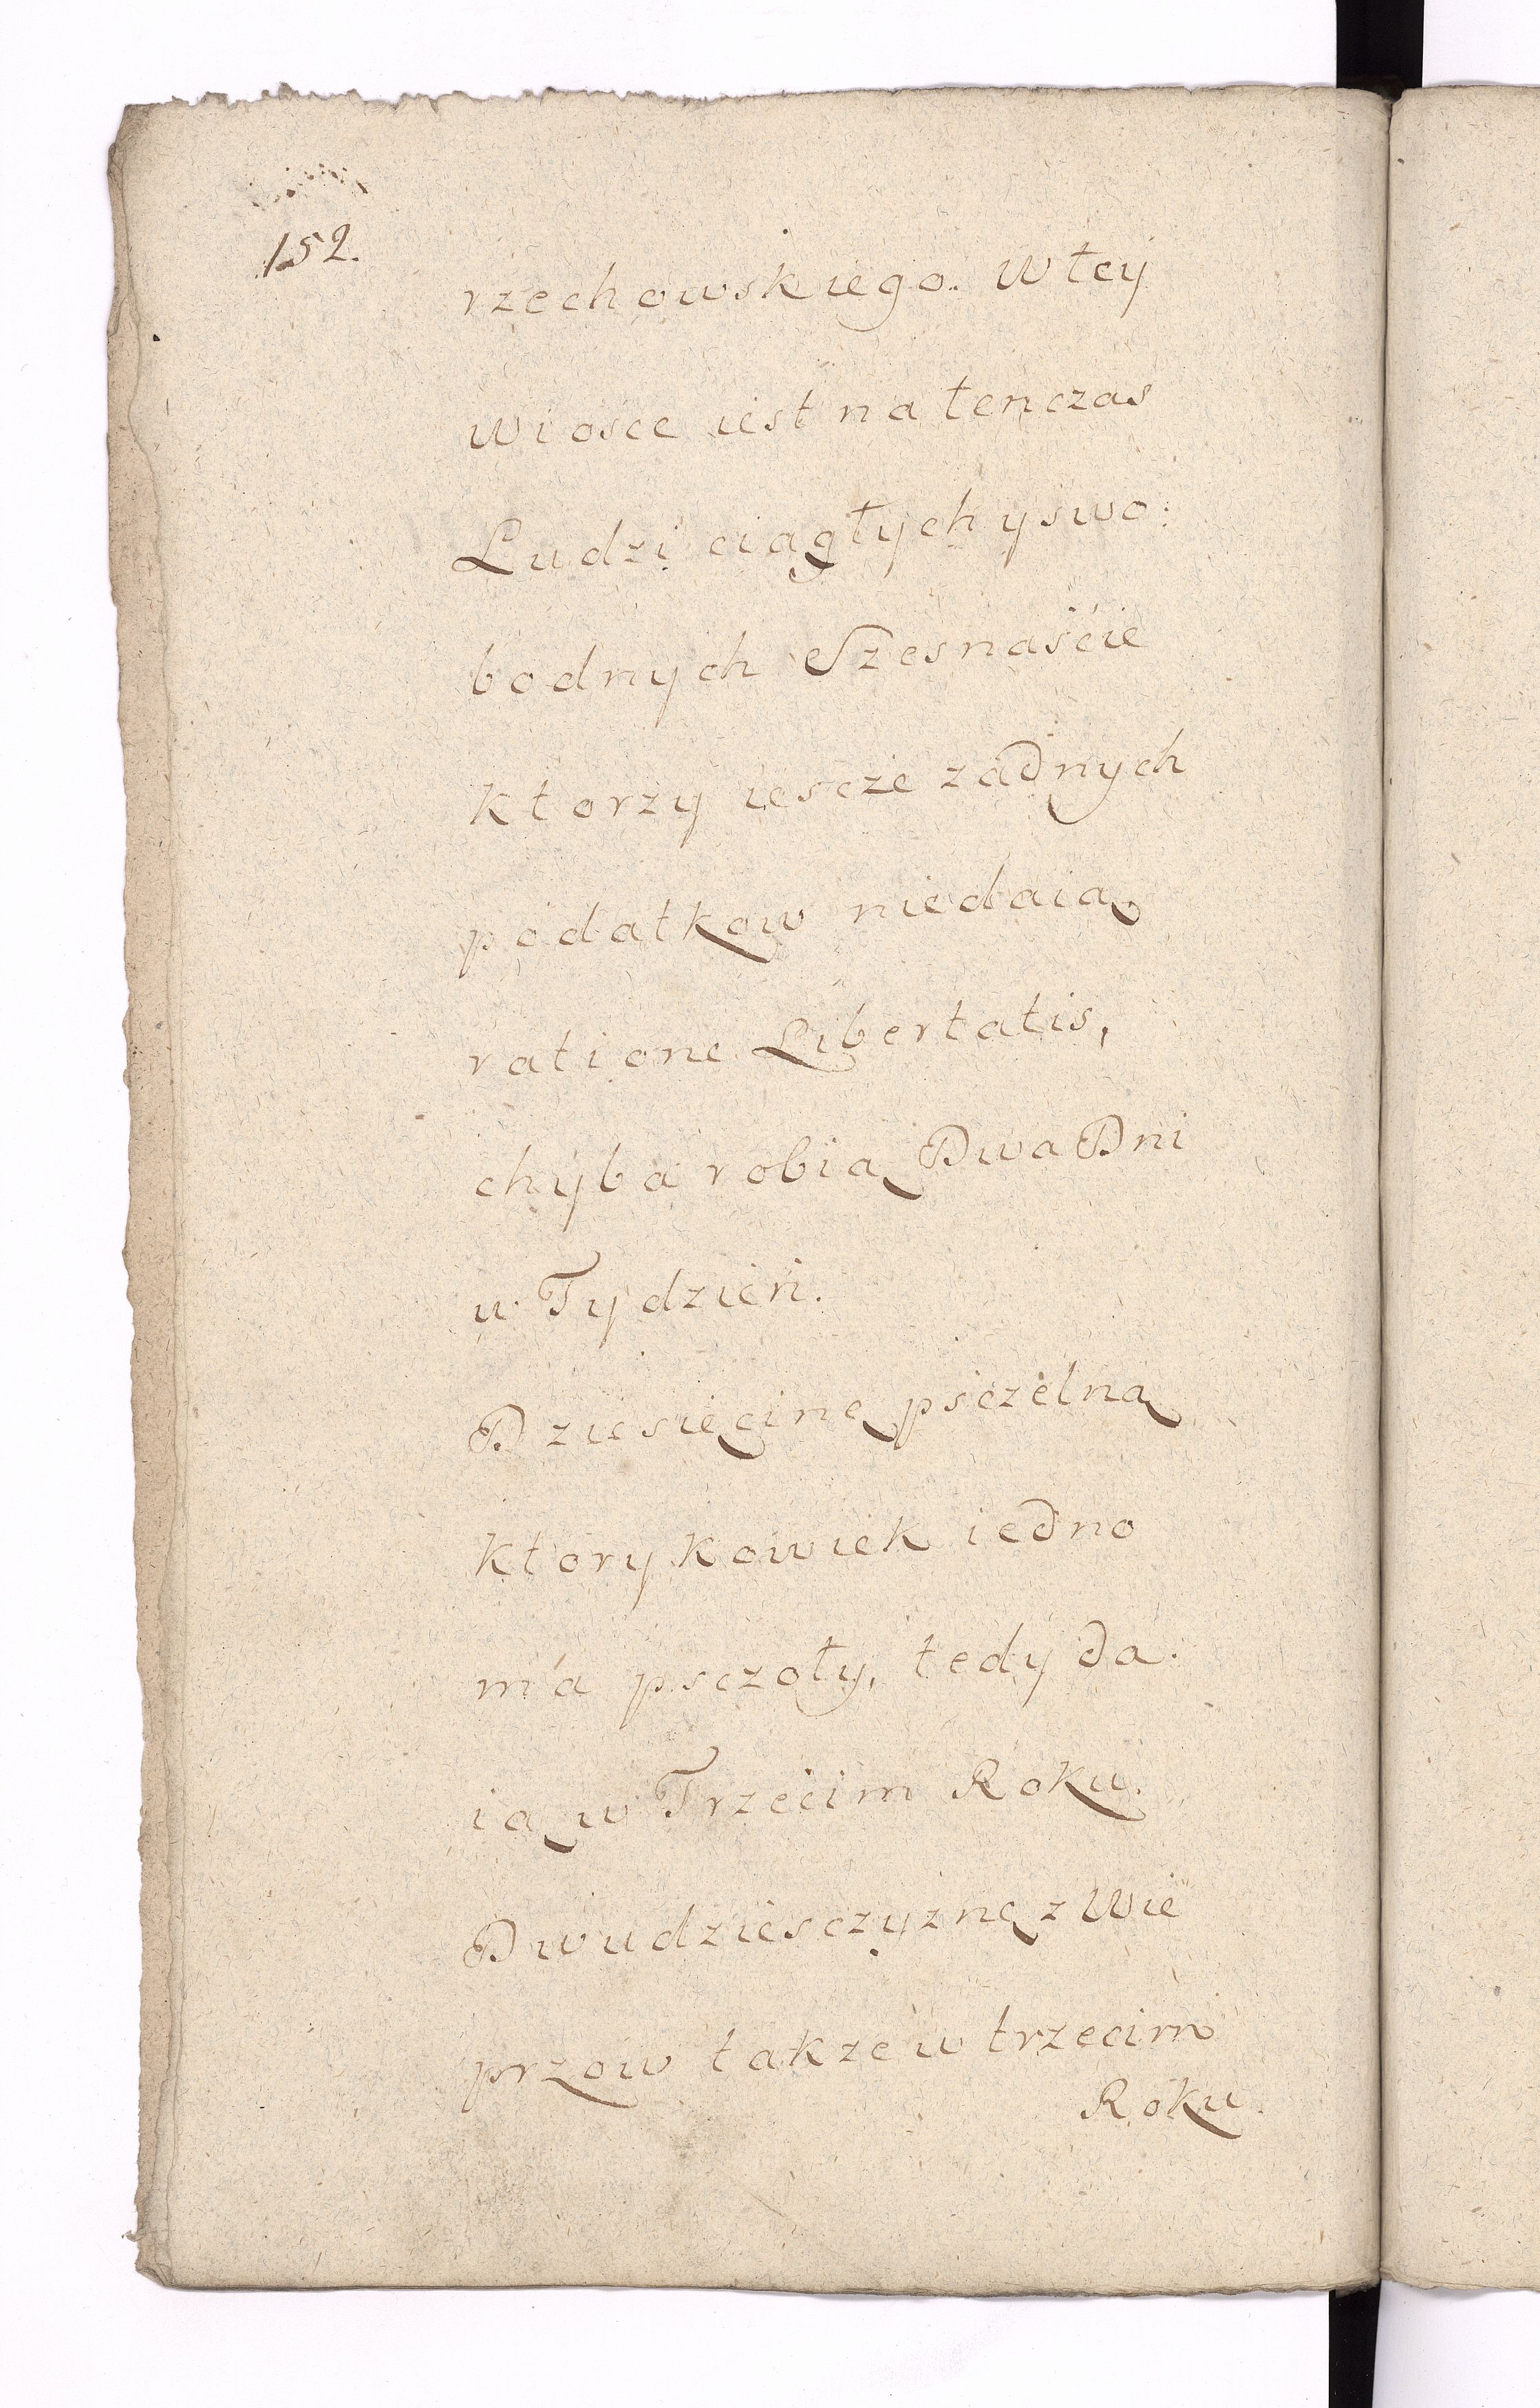 152.
rzechowskiego. w tey
wiosce iest na tenczas
Ludzi ciągłych y swo:
bodnych Szesnaście
ktorzy iescze zadnych
podatkow niedaią
ratione Libertatis,
chyba robią Dwa Dni
w Tydzień.
Dziesięcinę psczelną
ktorykowiek iedno
ma psczoły, tedy da.
ią w Trzecim Roku.
Dwudziesczyznę z Wie
przow takze w trzecim
Roku.